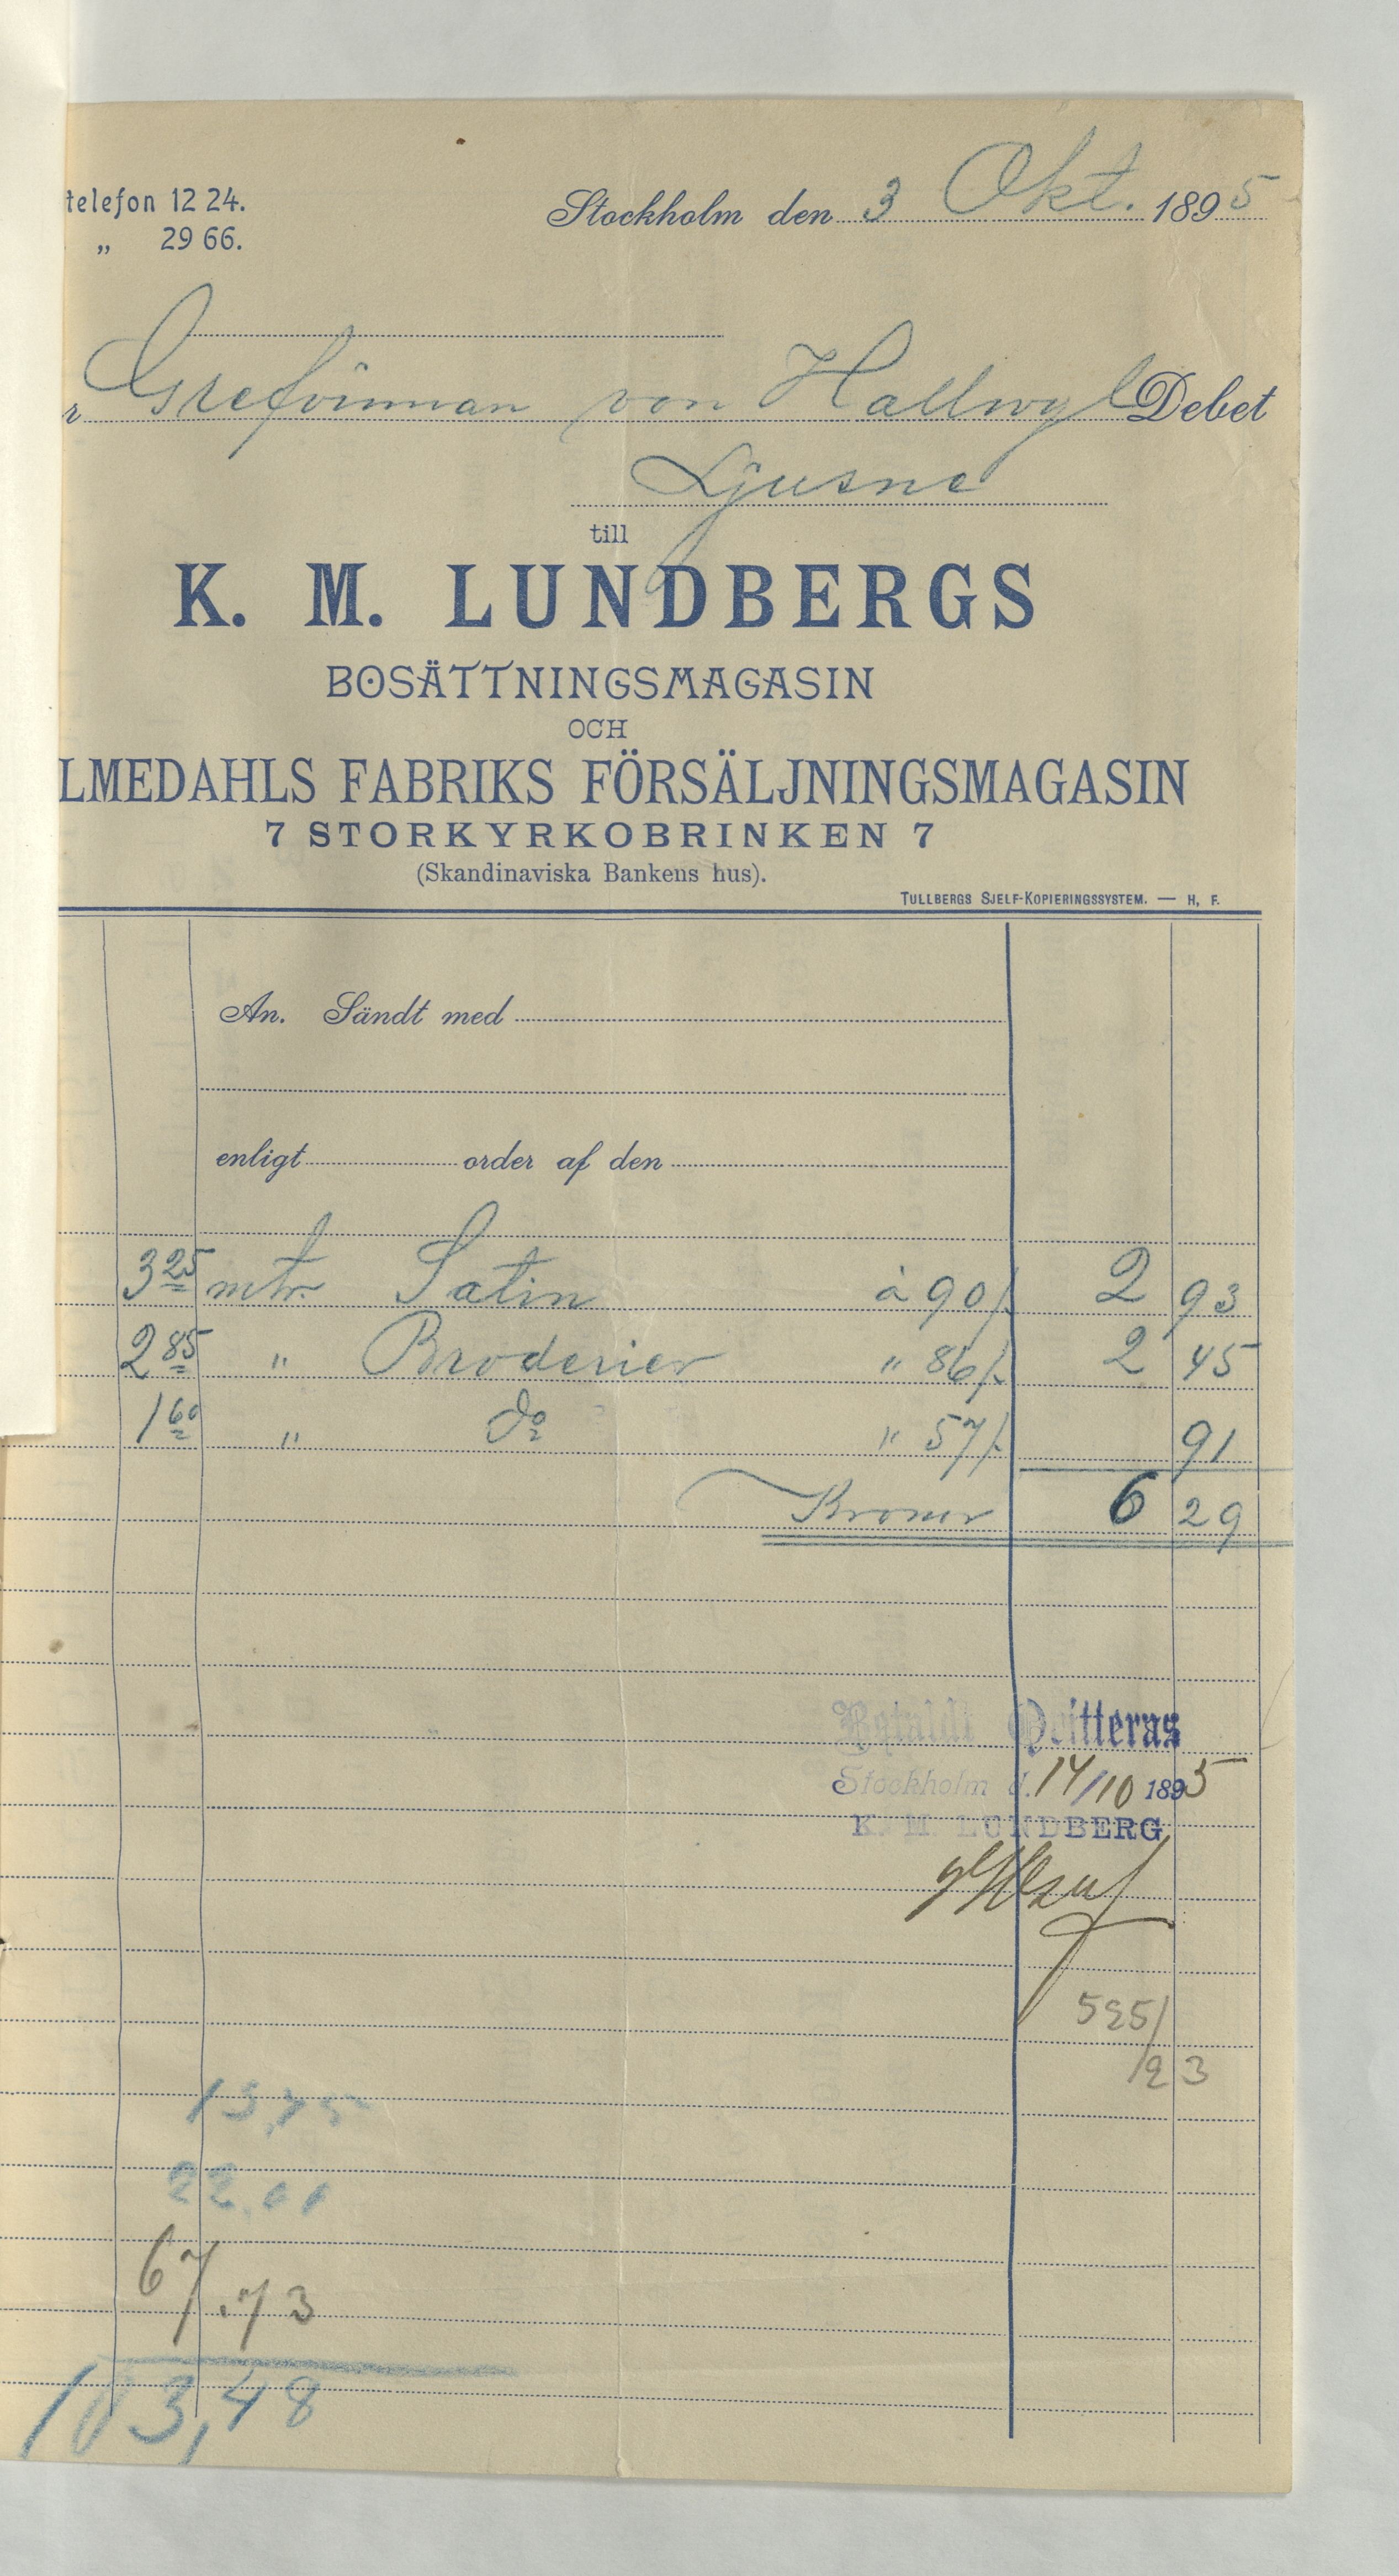 telefon 12 24.
„ 29 66.
Stockholm den 3 Okt. 1895
r Grefvinnan von Hallwyl Debet
Ljusne
till
K. M. LUNDBERGS
BOSÄTTNINGSMAGASIN
OCH
LMEDAHLS FABRIKS FÖRSÄLJNINGSMAGASIN
7 STORKYRKOBRINKEN 7
(Skandinaviska Bankens hus).
TULLBERGS SJELF-KOPIERINGSSYSTEM. — H. F.
An. Sändt med
enligt order af den
3 25 mtr Satin à 90/. 2 93
2 85 " Broderier " 86/. 2 45
1 60 " do " 57/. 91
Kronor 6 29
Betaldt Qvitteras
Stockholm d. 14/10 1895
K. M. LUNDBERG
525/
/23
13,75
22,00
67.73
103,48